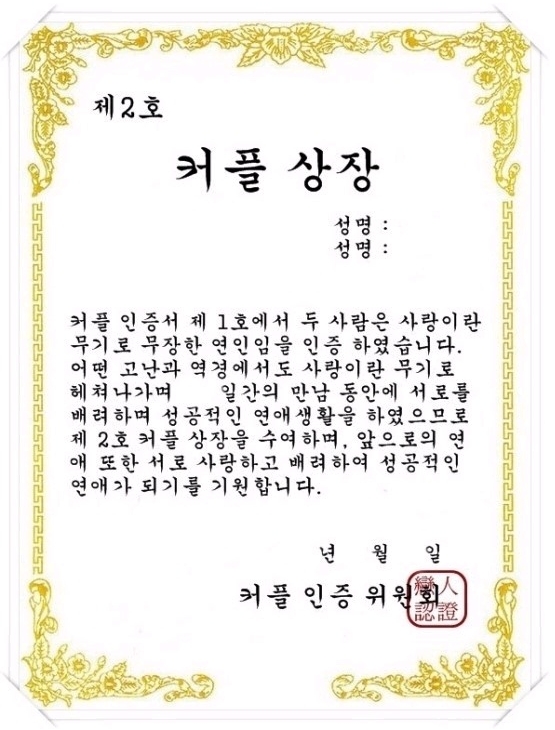 제2호
커플 상장
성명 :
성명 :
커플 인증서 제 1호에서 두 사람은 사랑이란
무기로 무장한 연인임을 인증 하였습니다.
어떤 고난과 역경에서도 사랑이란 무기로
헤쳐나가며 일간의 만남 동안에 서로를
배려하며 성공적인 연애생활을 하였으므로
제 2호 커플 상장을 수여하며, 앞으로의 연
애 또한 서로 사랑하고 배려하여 성공적인
연애가 되기를 기원합니다.
년 월 일
커플 인증 위원회
戀人
認證